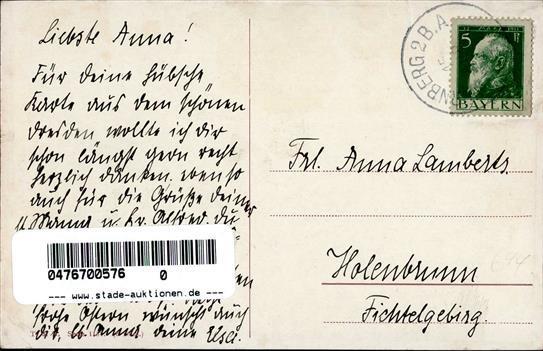 Liebste Anna!
Für deine hübsche
Karte aus dem schönen
Dresden wollte ich dir
schon längst gern recht
herzlich danken. ebenso
auch für die Grüße deiner
Mama u. Alfred. du
0476700576 0
--- www.stade-auktionen.de ---
frohe Ostern wünscht auch
dir, lb. Anna deine Elsa.
NBERG 2 B.A.
5 Pf
BAYERN
Frl. Anna Lamberts.
Holenbrunn
Fichtelgebirg.